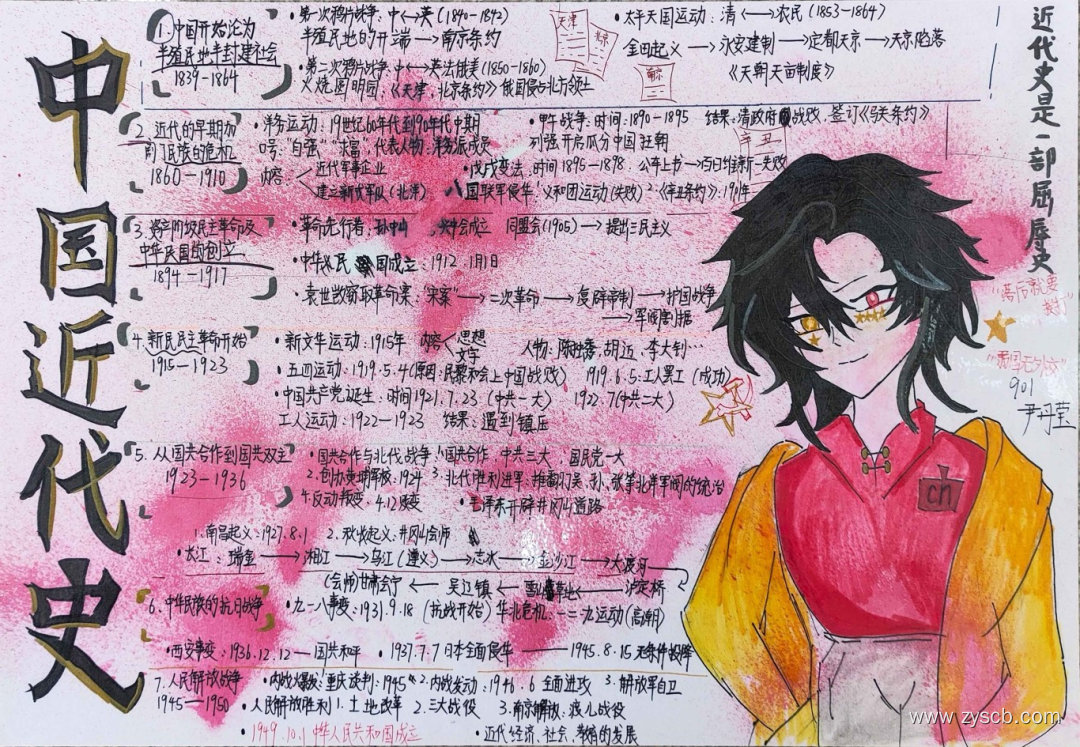 中国近代史
近代史是一部屈辱史
1.中国开始沦为
半殖民地半封建社会
1839-1864
·第一次鸦片战争:中⟷英(1840-1842)
半殖民地的开端→南京条约
·第二次鸦片战争:中⟷英法俄美(1850-1860)
火烧圆明园,《天津,北京条约》俄国侵占北方领土
天津
北京
南京
·太平天国运动:清⟷农民(1853-1864)
金田起义→永安建制→定都天京→天京陷落
《天朝田亩制度》
2.近代的早期加
剧了民族的危机
1860-1910
·洋务运动:19世纪60年代到90年代中期
口号:"自强""求富"代表人物:洋务派成员
内容:
近代军事企业
建立新式军队(北洋)
·甲午战争:时间:1890-1895 结果:清政府战败,签订《马关条约》
列强开启瓜分中国狂朝
辛丑
·戊戌变法,时间1895-1898:公车上书→百日维新→失败
八国联军侵华:¹义和团运动(失败)²《辛丑条约》:1901年
3.资产阶级民主革命及
中华民国的创立
1894-1917
·革命先行者:孙中山,兴中会成立 同盟会(1905)→提出三民主义
·中华民国成立:1912年1月1日
·袁世凯窃取革命果:"宋案"→二次革命→复辟帝制→护国战争
→军阀割据
4.新民民主革命开始
1915-1923
·新文华运动:1915年 内容<思想
文字
人物:陈独秀,胡适,李大钊…
·五四运动:1919.5.4(原因:巴黎和会上中国战败) 1919.6.5:工人罢工(成功)
·中国共产党诞生:时间1921.7.23(中共一大) 1922.7(中共二大)
工人运动:1922-1923 结果:遇到镇压
"落后就要
挨打"
"弱国无外交"
901
尹丹莹
5.从国共合作到国共双主
1923-1936
·国共合作与北伐战争:¹国共合作,中共三大 国民党一大
2.创办黄埔军校:1924 3.北伐胜利进军:推翻了吴、孙、张等北洋军阀的统治
4.反动叛变,4.12政变 ·毛泽东开辟井冈山道路
1.南昌起义:1927.8.1 2.秋收起义:井冈山会师
·长江:瑞金→湘江→乌江(遵义)→赤水→金沙江→大渡河
(会师)甘肃会宁←吴迄镇←雪山草地←泸定桥
ch
6.中华民族的抗日战争
·九一八事变:1931.9.18(抗战开始)华北危机:一二九运动(高潮)
·西安事变:1936.12.12—国共和平 ·1937.7.7日本全面侵华——1945.8.15无条件投降
7.人民解放战争
1945-1950
·内战火爆发:重庆谈判:1945 2.内战发动:1946.6全面进攻 3.解放军自卫
·人民解放胜利 1.土地改革 2.三大战役 3.南京解放:渡江战役
·1949.10.1中华人民共和国成立 ·近代经济、社会、教育的发展
www.zyscb.com